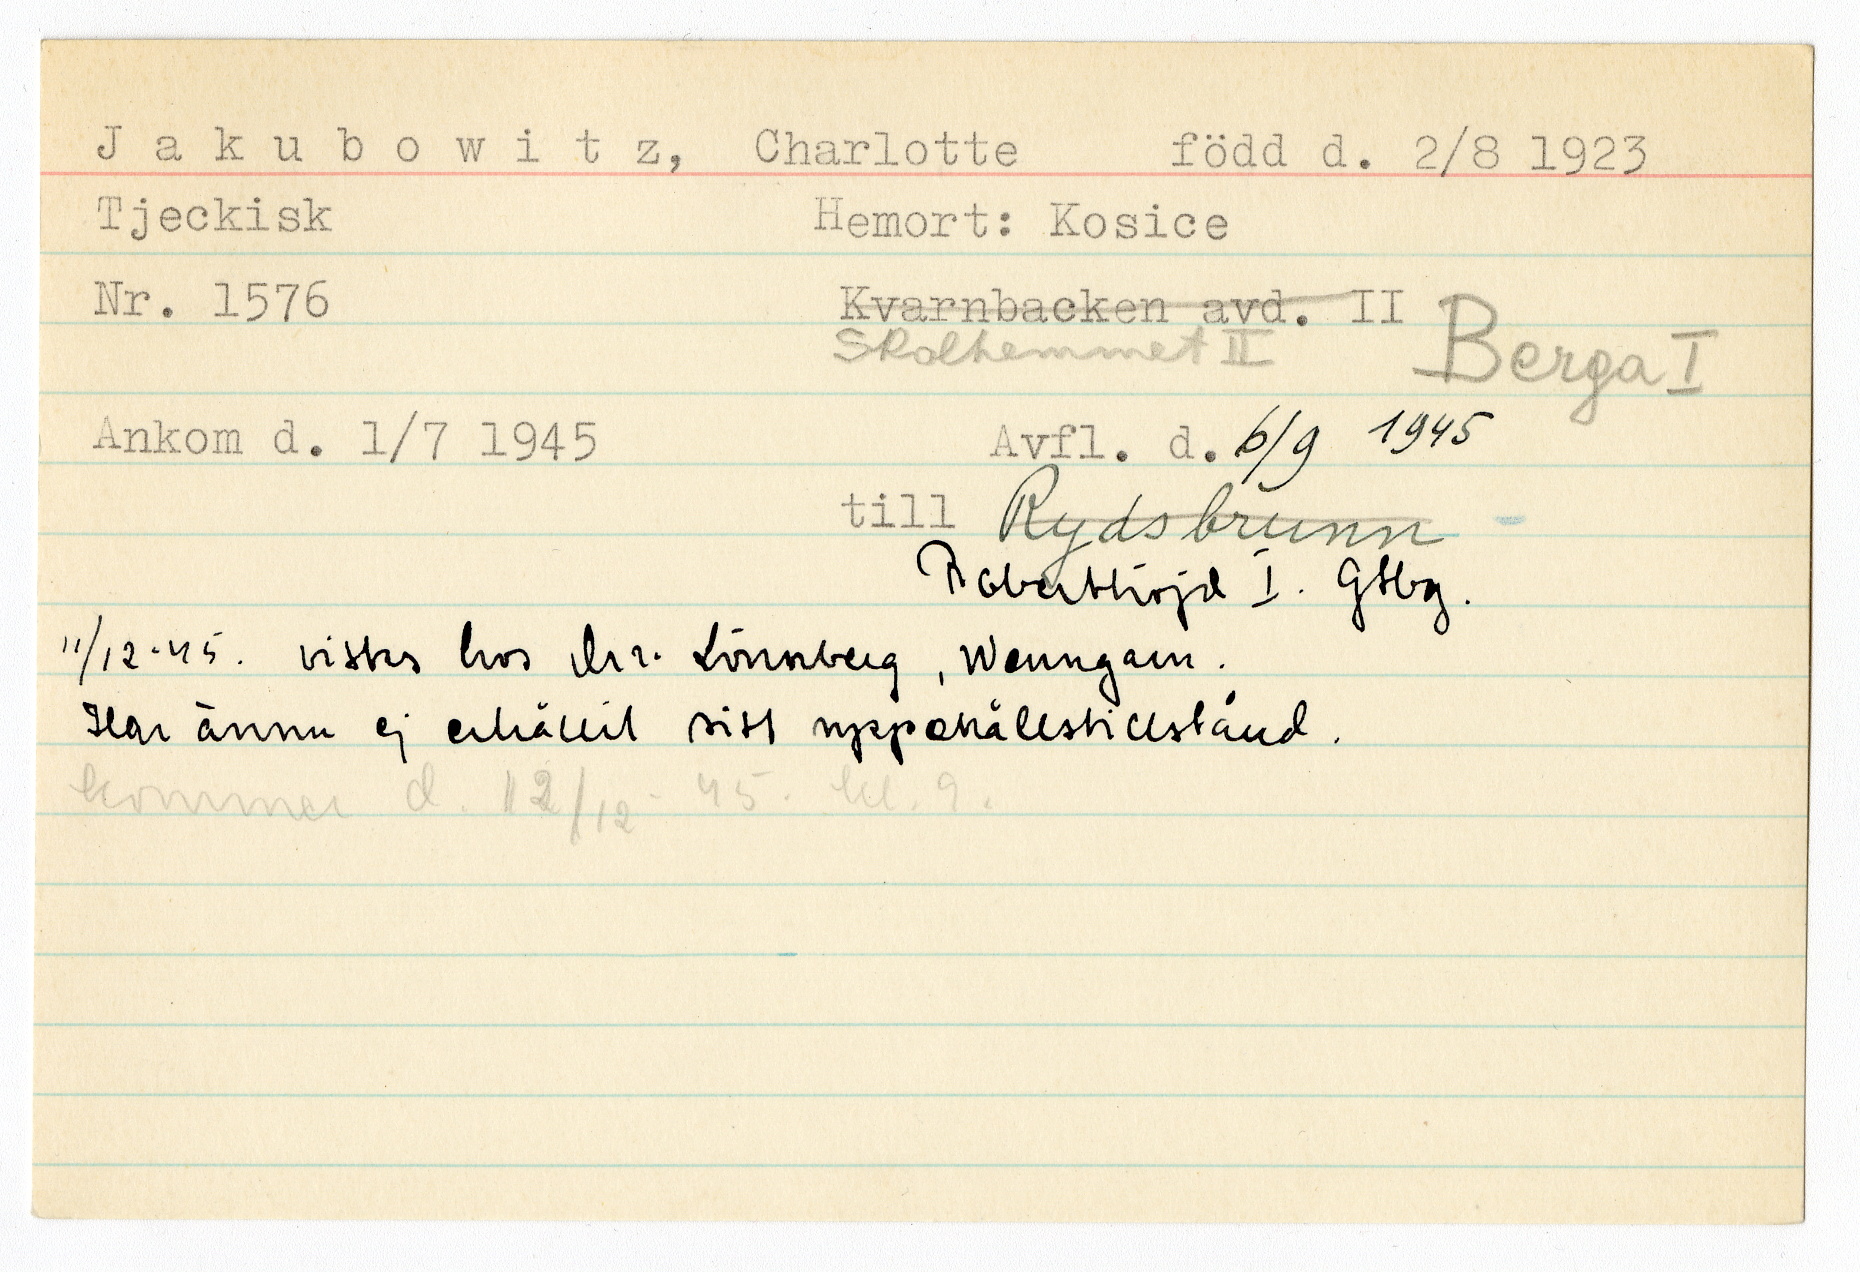 Jakubowitz, Charlotte född d. 2/8 1923
Tjeckisk Hemort: Kosice
Nr. 1576 Kvarnbacken avd. II
Skolhemmet II Berga I
Ankom d. 1/7 1945 Avfl. d. 6/9 1945
till Rydsbrunn
Robertshöjd I. Gtbg.
11/12-45. vistas hos Lönnberg, Wenngarn.
Har ännu ej erhållit sitt uppehållstillstånd.
kommer d. 12/12-45. kl. 9.